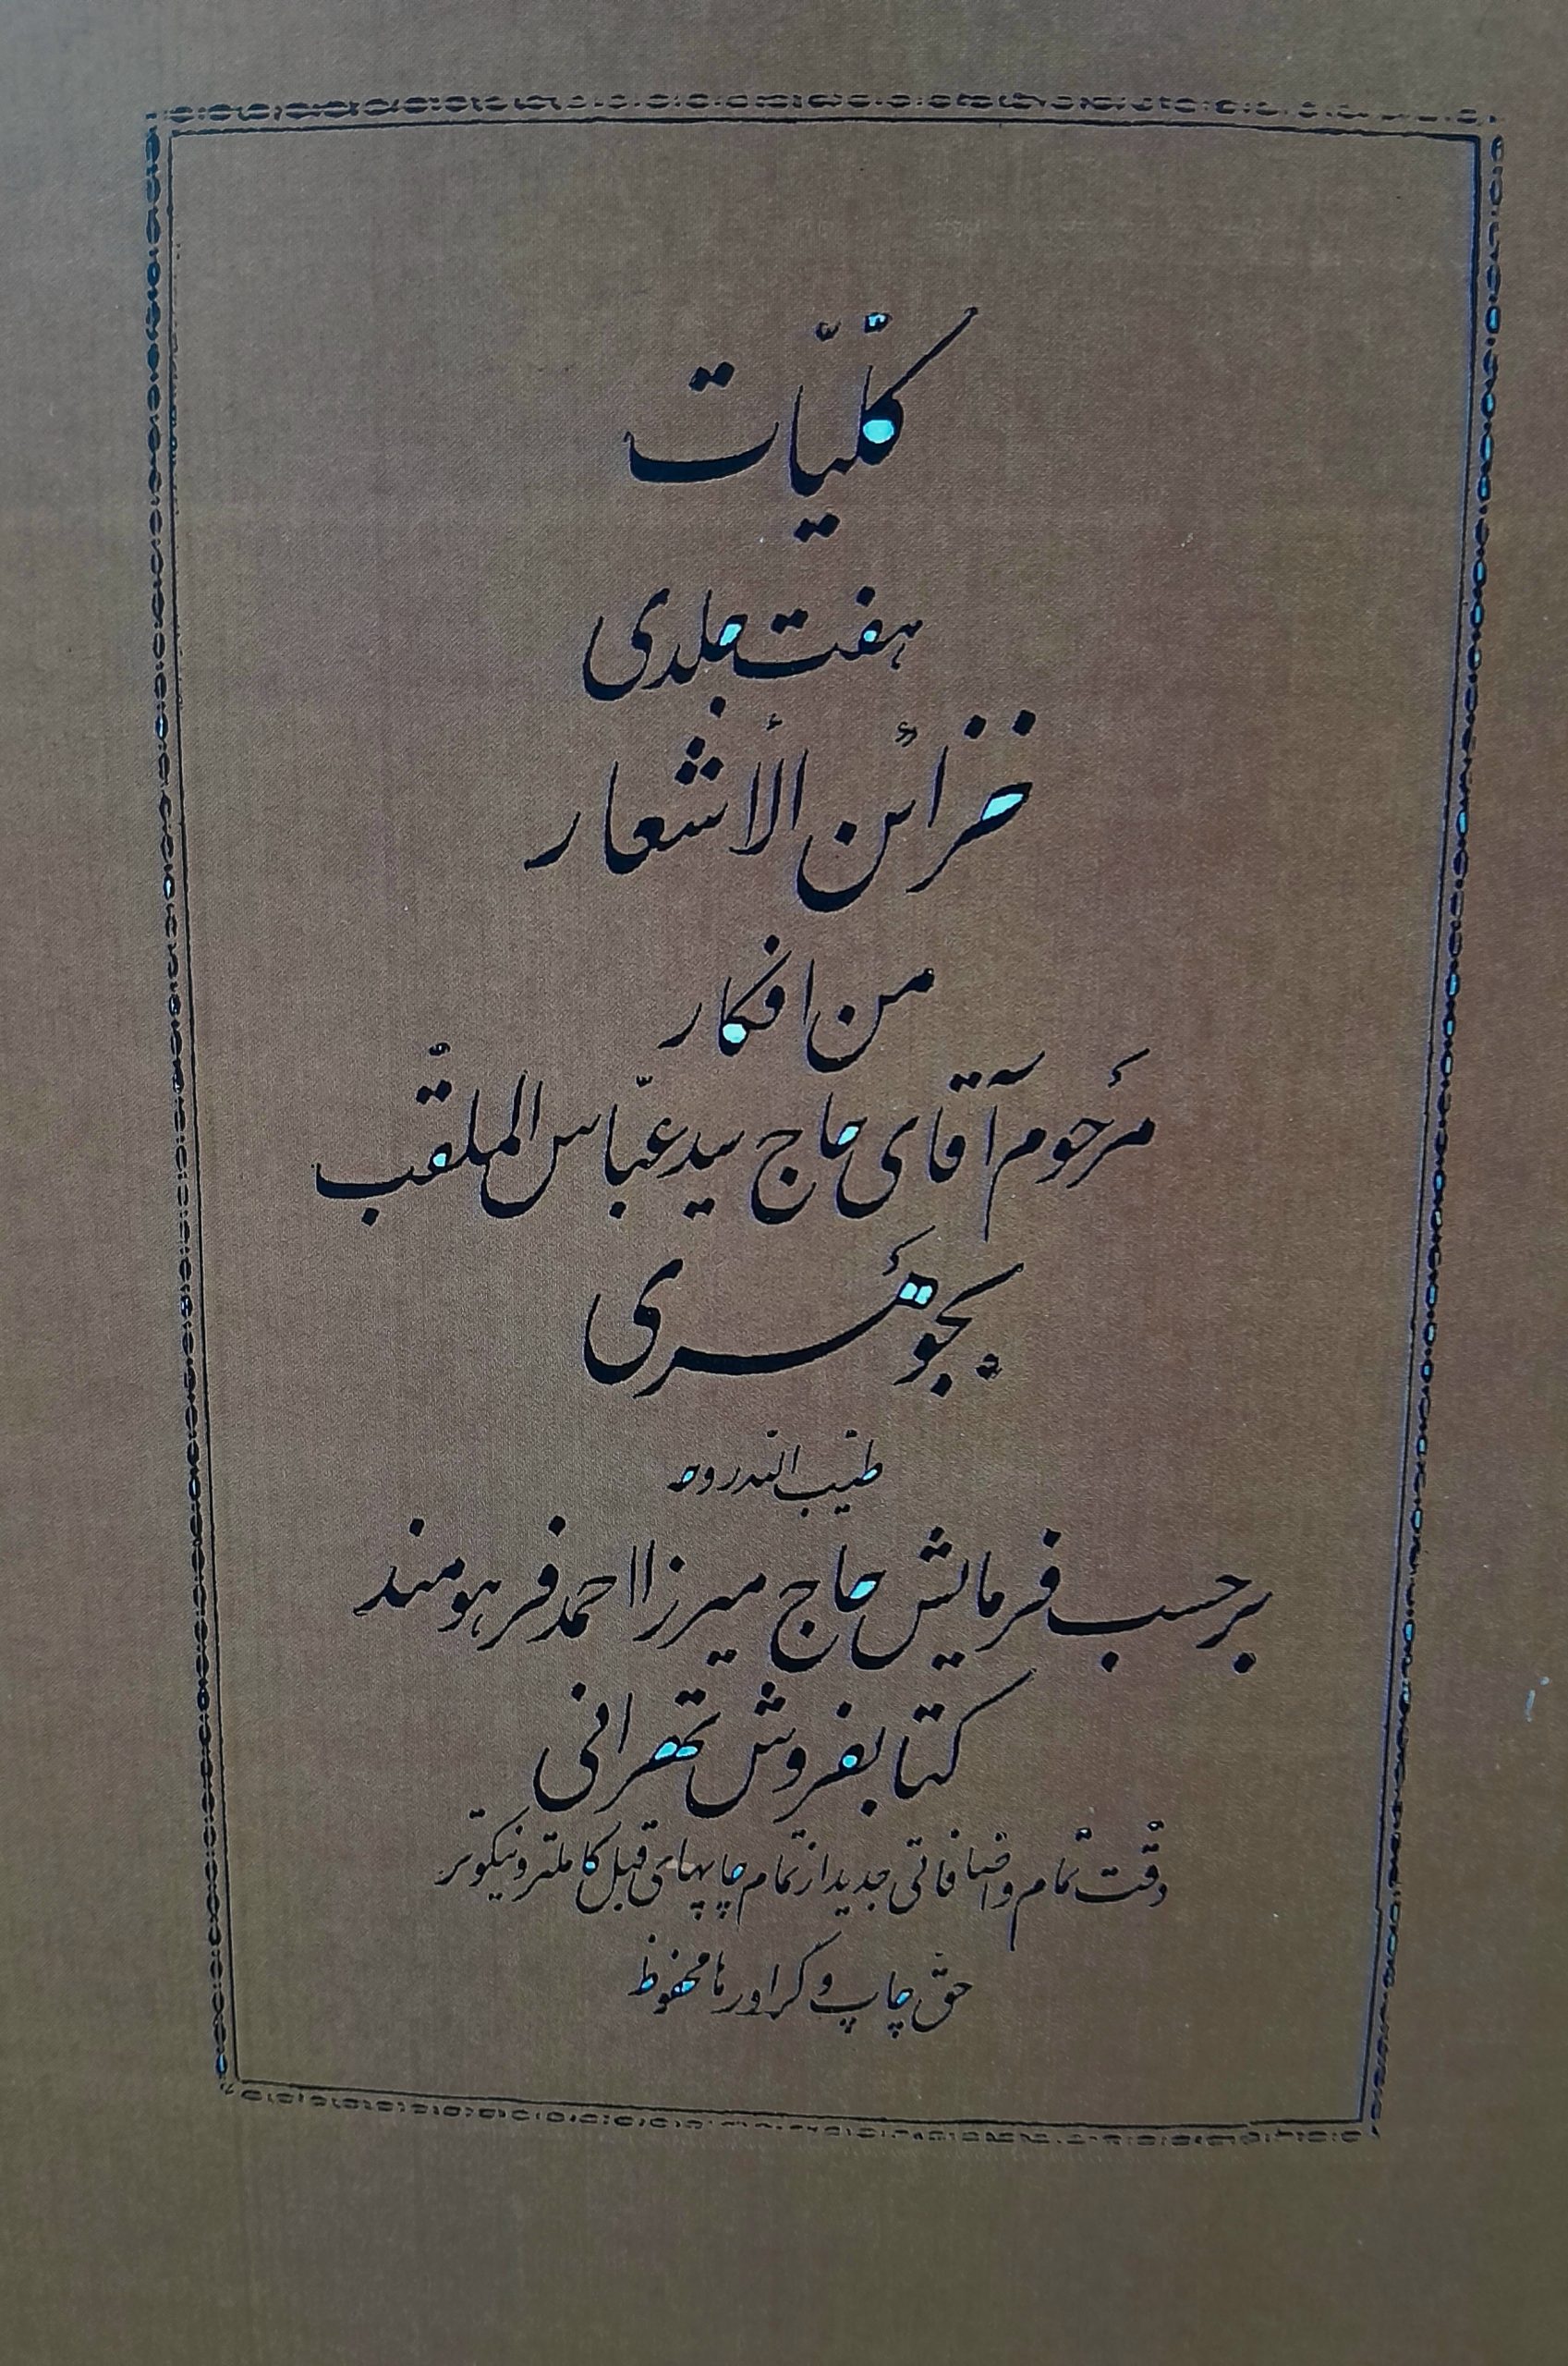 کلّیّات
هفت جلدی
خزائن الأشعار
من افکار
مرحوم آقای حاج سید عبّاس الملقّب
بجوهری
طیّب الله روحه
برحسب فرمایش حاج میرزا احمد فرهومند
کتابفروش تهرانی
دقّت تمام و اضافاتی جدید از تمام چاپهای قبل کاملتر و نیکوتر
حقّ چاپ و گراورها محفوظ